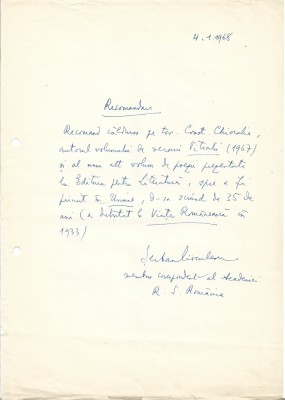 4.1.1968
Recomandare
Recomand călduros pe tov. Const. Chioralia,
autorul volumului de versuri Vitralii (1947)
și al unui alt volum de poezii prezentate
la Editura pentru Literatură, spre a fi
primit în Uniune, d-sa scriind de 35 de
ani (a debutat la Viața Românească în
1933)
Șerban Cioculescu
membru corespondent al Academiei
R. S. România